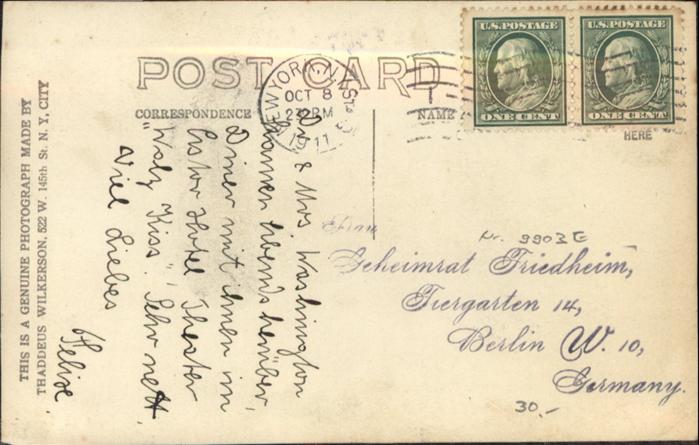 POST CARD
CORRESPONDENCE
NAME
HERE
U.S. POSTAGE
ONE CENT
U.S. POSTAGE
ONE CENT
NEW YORK, N.Y.
OCT 8
2 30 PM
1911
THIS IS A GENUINE PHOTOGRAPH MADE BY
THADDEUS WILKERSON, 522 W. 145th St. N. Y. CITY
Dr & Mrs. Washington
kamen Abends herüber,
Diner mit ihnen im
Astor Hotel Theater
"Walz Kiss". Sehr nett
Viel Liebes
Felise.
Nr. 9903 E
Frau
Geheimrat Friedheim,
Tiergarten 14,
Berlin W. 10,
Germany.
30.-